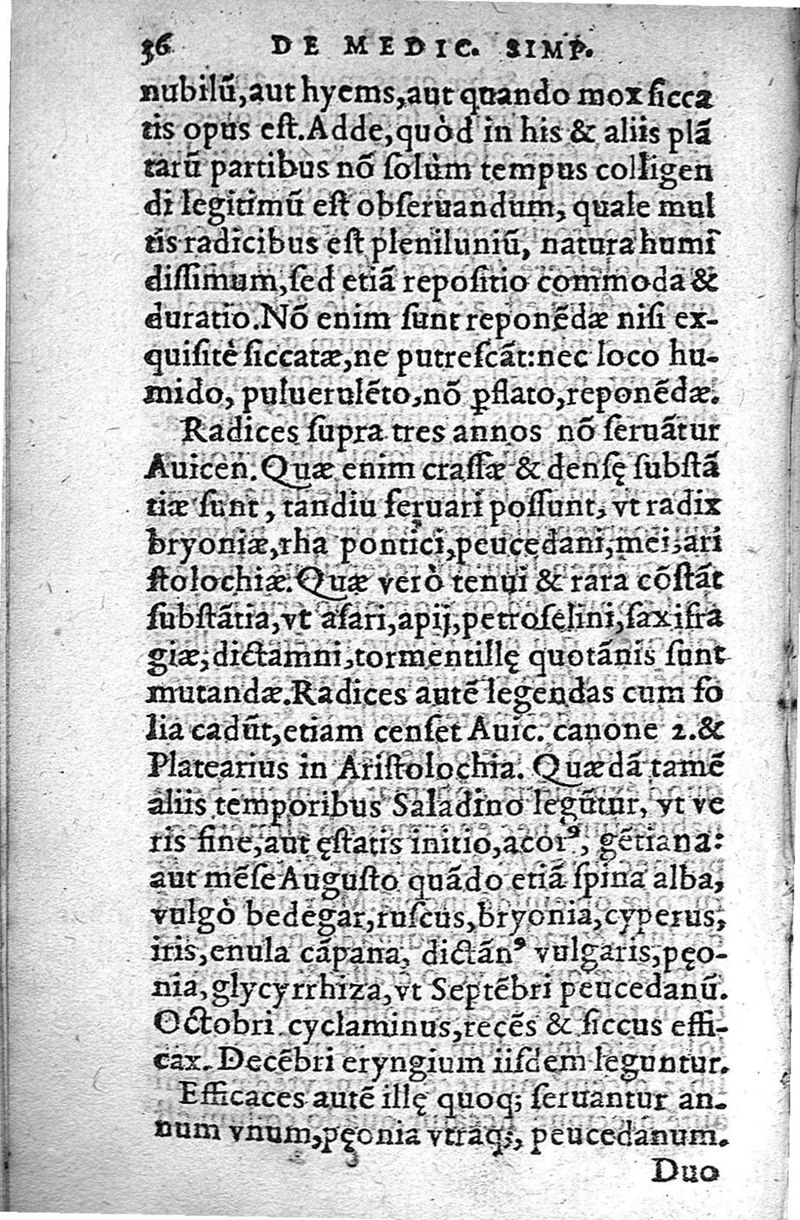 36 DE MEDIC. SIMP.
nubilũ,aut hyems,aut quando mox ſicca
tis opus eſt.Adde,quòd in his & aliis plã
tarũ partibus nõ ſolùm tempus colligen
di legitimũ eſt obſeruandum, quale mul
tis radicibus eſt pleniluniũ, natura humi
diſſimum,ſed etiã repoſitio commoda &
duratio.Nõ enim ſunt reponẽdæ niſi ex-
quiſitè ſiccatæ,ne putreſcãt:nec loco hu-
mido, puluerulẽto,nõ ꝑflato,reponẽdæ.
Radices ſupra tres annos nõ ſeruãtur
Auicen.Quæ enim craſſæ & denſę ſubſtã
tiæ ſunt, tandiu ſeruari poſſunt, vt radix
bryoniæ,rha pontici,peucedani,mei,ari
ſtolochiæ.Quæ verò tenui & rara cõſtãt
ſubſtãtia,vt aſari,apij,petroſelini,ſaxifra
giæ,dictamni,tormentillę quotãnis ſunt
mutandæ.Radices autẽ legendas cum fo
lia cadũt,etiam cenſet Auic. canone 2.&
Platearius in Ariſtolochia. Quædã tamẽ
aliis temporibus Saladino legũtur, vt ve
ris fine,aut ęſtatis initio,acorꝰ, gẽtiana:
aut mẽſe Auguſto quãdo etiã ſpina alba,
vulgò bedegar,ruſcus,bryonia,cyperus,
iris,enula cãpana, dictãnꝰ vulgaris,pęo-
nia,glycyrrhiza,vt Septẽbri peucedanũ.
Octobri cyclaminus,recẽs & ſiccus effi-
cax.Decẽbri eryngium iiſdem leguntur.
Efficaces autẽ illę quoq; ſeruantur an-
num vnum,pęonia vtraq;, peucedanum.
Duo